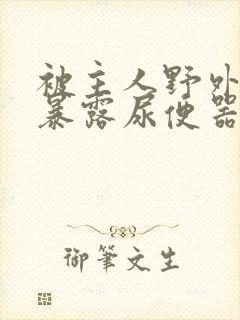 被主人野外
暴露尿便器
御筆文生